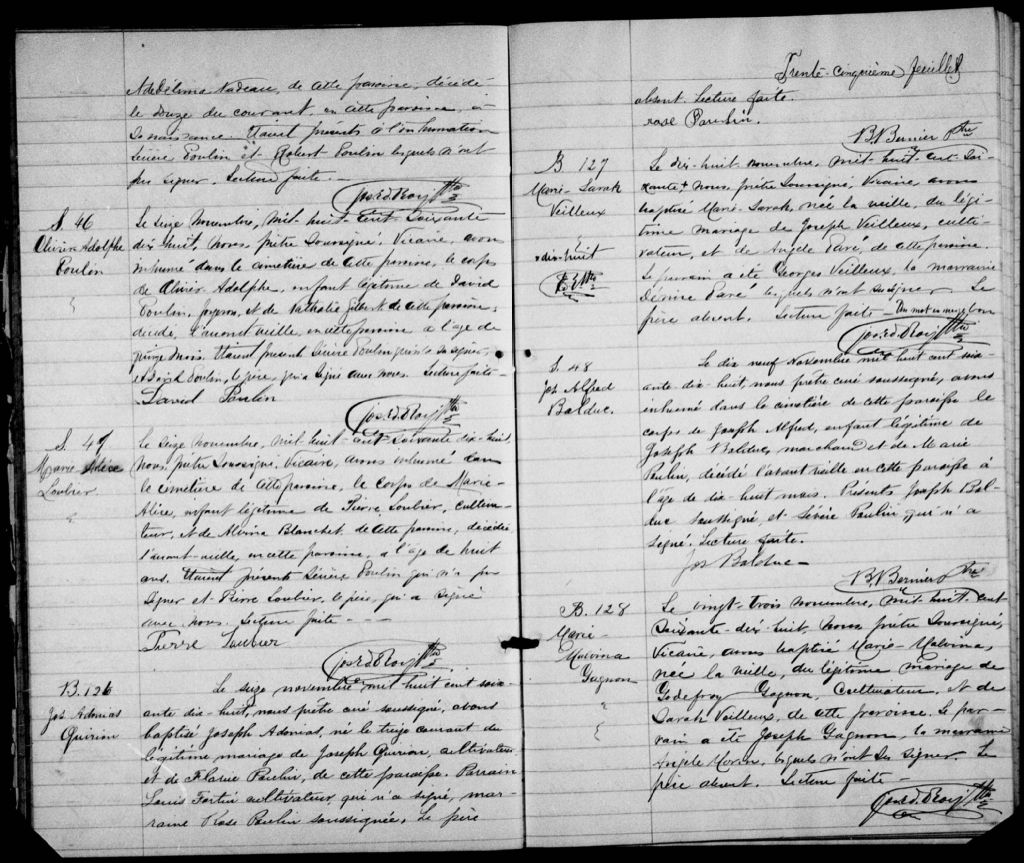 Adelélima Nadeau, de cette paroisse, décédé
le douze du courant en cette paroisse à
sa naissance. Etaient présents à l'inhumation
Sévère Poulin et Robert Poulin lesquels n'ont
pu signer. Lecture faite.
Jos. Ed. Roy Ptre
S. 46
Olivier Adolphe
Poulin
Le seize novembre, mil huit cent soixante
dix huit, nous prêtre soussigné, Vicaire, avons
inhumé dans le cimetière de cette paroisse, le corps
de Olivier Adolphe, enfant légitime de David
Poulin, forgeron, et de Nathalie Gilbert de cette paroisse,
décédé, l'avant veille, en cette paroisse à l'âge de
quinze mois. Etaient présents Sévère Poulin qui n'a su signer,
et David Poulin, le père, qui a signé avec nous. Lecture faite
David Poulin
Jos. Ed. Roy Ptre
S. 47
Marie Alice
Loubier
Le seize novembre, mil huit cent soixante dix-huit,
Nous, prêtre soussigné, Vicaire, avons inhumé dans
le cimetière de cette paroisse, le corps de Marie
Alice, enfant légitime de Pierre Loubier, cultiva-
teur, et de Alvina Blanchet de cette paroisse, décédée
l'avant-veille, en cette paroisse, à l'âge de huit
ans. Etaient présents Sévère Poulin qui n'a pu
signer et Pierre Loubier, le père, qui a signé
avec nous. Lecture faite - - -
Pierre Loubier
Jos. Ed. Roy Ptre
B. 126
Jos Adonias
Quirion
Le seize novembre mil huit cent soix-
ante dix-huit, nous prêtre curé soussigné, avons
baptisé Joseph Adonias, né le treize courant du
légitime mariage de Joseph Quirion, cultivateur
et de Flavie Poulin, de cette paroisse. Parrain
Louis Fortin cultivateur qui n'a signé, mar-
raine Rose Poulin soussignée, le père
Trente-cinquième feuillet
absent. Lecture faite.
rose Poulin.
B. Bernier Ptre
B. 127
Marie-Sarah
Veilleux
Le dix-huit novembre, mil-huit-cent-soi-
xante + nous prêtre soussigné, Vicaire, avons
baptisé Marie-Sarah, née la veille, du légi-
time mariage de Joseph Veilleux, culti-
vateur, et de Angèle Paré, de cette paroisse.
+ dix-huit
Le parrain a été Georges Veilleux, la marraine
Désirée Paré lesquels n'ont su signer. Le
père absent. Lecture faite - Un mot en marge bon
Jos. Ed. Roy Ptre
S. 48
Jos Alfred
Balduc.
Le dix neuf Novembre mil huit cent soix-
ante-dix-huit, nous prêtre curé soussigné, avons
inhumé dans le cimetière de cette paroisse le
corps de Joseph Alfred, enfant légitime de
Joseph Balduc, marchand et de Marie
Poulin, décédé l'avant veille en cette paroisse à
l'âge de dix-huit mois. Présents Joseph Bal-
duc soussigné, et Sévère Poulin qui n'a
signé. Lecture faite.
Jos Balduc
B. Bernier Ptre
B. 128
Marie-
Malvina
Gagnon
Le vingt-trois novembre, mil-huit-cent
soixante-dix-huit, nous prêtre soussigné,
Vicaire, avons baptisé Marie-Malvina,
née la veille, du légitime mariage de
Godefroy Gagnon, cultivateur, et de
Sarah Veilleux, de cette paroisse. Le par-
rain a été Joseph Gagnon, la marraine
Angèle Morin lesquels n'ont su signer. Le
père absent. Lecture faite -
Jos. Ed. Roy Ptre